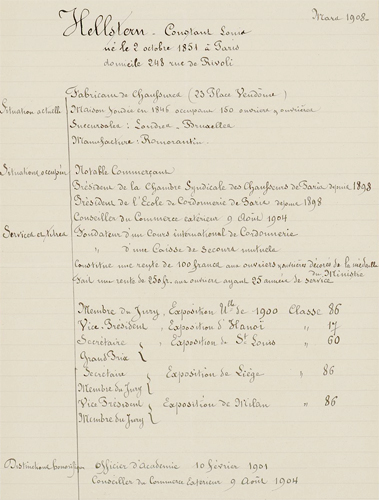 Mars 1908.
Hellstern - Constant Louis
né le 2 octobre 1851 à Paris
domicilié 248 rue de Rivoli
Situation actuelle
Fabricant de Chaussures (23 Place Vendôme)
Maison fondée en 1846 occupant 160 ouvriers & ouvrières
Succursales : Londres - Bruxelles
Manufacture : Romorantin
Situations occupées
Notable Commerçant
Président de la Chambre Syndicale des Chausseurs de Paris depuis 1898
Président de l'Ecole de Cordonnerie de Paris depuis 1898
Conseiller du Commerce extérieur 9 Août 1904
Services et titres
Fondateur d'un Cours international de Cordonnerie
" d'une Caisse de Secours mutuels
Constitue une rente de 100 francs aux ouvriers & ouvrières décorés de la médaille du Ministre
Fait une rente de 250 frs aux ouvriers ayant 25 années de service
Membre du Jury, Exposition Ulle de 1900 Classe 86
Vice Président, Exposition d'Hanoï " 17
Secrétaire, Exposition de St Louis " 60
Grand Prix
Secrétaire, Exposition de Liège " 86
Membre du Jury
Vice Président, Exposition de Milan " 86
Membre du Jury
Distinctions honorifiques
Officier d'Académie 10 février 1901
Conseiller du Commerce Extérieur 9 Août 1904